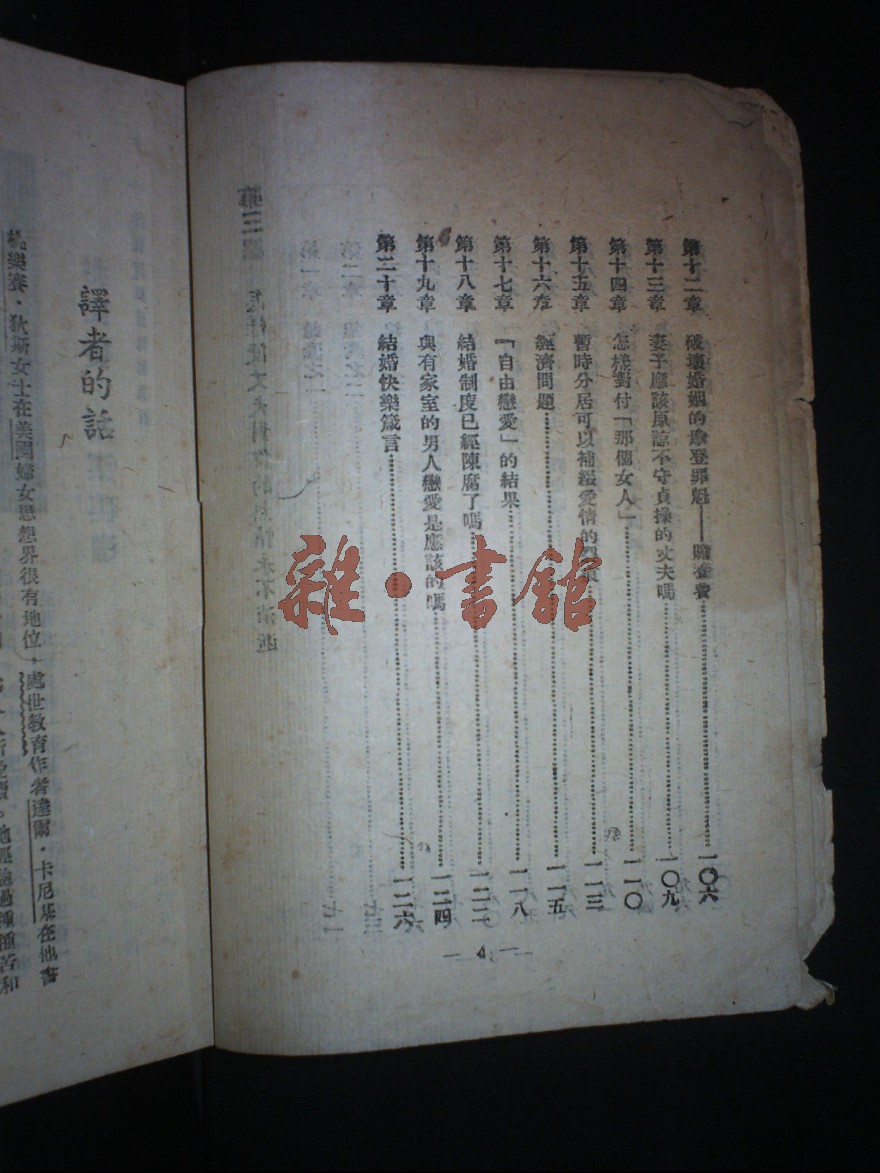 第十二章 破壞婚姻的摩登罪魁——贍養費 一〇六
第十三章 妻子應該原諒不守貞操的丈夫嗎 一〇九
第十四章 怎樣對付「那個女人」 一一〇
第十五章 暫時分居可以補綴愛情的 一一三
第十六章 經濟問題 一一五
第十七章 「自由戀愛」的結果 一一八
第十八章 結婚制度已經陳腐了嗎 一二二
第十九章 與有家室的男人戀愛是應該的嗎 一二四
第二十章 結婚快樂箴言 一二六
— 4 —
雜·書館
譯者的話
桃樂賽·狄斯女士在美國婦女思想界很有地位，處世教育作者達爾·卡尼基在他書